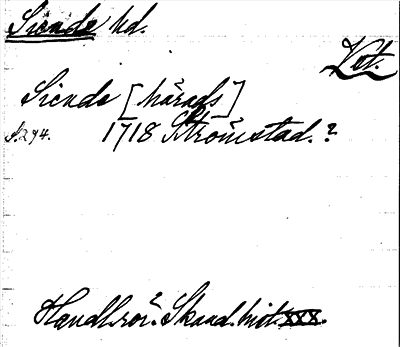 Siende hd.
Vst.
Siende [härads]
S.294. 1718 Strömstad.?
Handl. rör. Skand. hist. XXX.